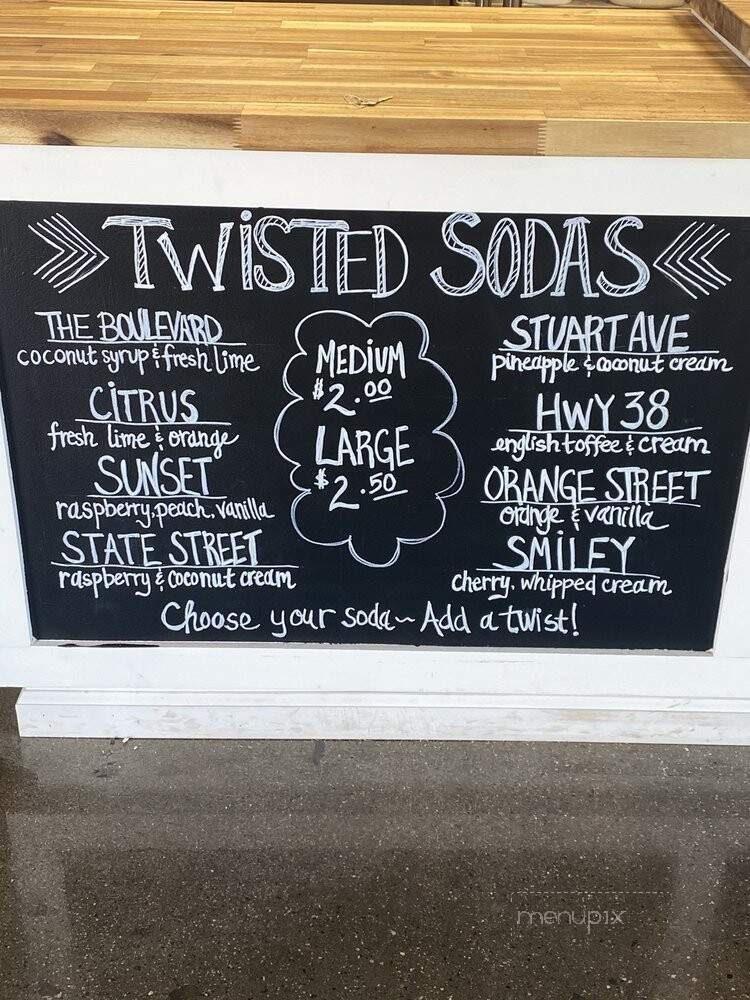 TWiSTED SODAS
THE BOULEVARD
coconut syrup & fresh lime
CiTRUS
fresh lime & orange
SUNSET
raspberry, peach, vanilla
STATE STREET
raspberry & coconut cream
MEDIUM
$2.00
LARGE
$2.50
STUART AVE
pineapple & coconut cream
HWY 38
english toffee & cream
ORANGE STREET
orange & vanilla
SMILEY
cherry, whipped cream
Choose your soda~ Add a twist!
menupix